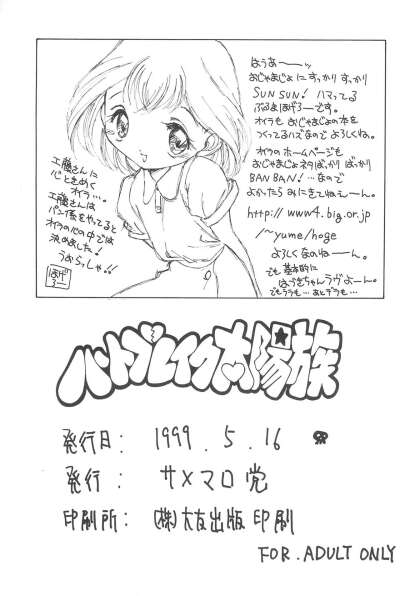 はうあ〜〜ッ
おじゃまじょに すっかり すっかり
SUN SUN! ハマってる
ぶるまほげろーです。
オイラも おじゃまじょの本を
つくってるハズなので よろしくね。
オイラのホームページも
おじゃまじょネタばっかり ばっかり
BAN BAN! …なので
よかったら みにきてねえ〜ん。
http://www4.big.or.jp
/~yume/hoge
よろしくなのね〜ん。
でも 基本的に
はづきちゃんラヴよーん。
でもララも…あとデラも…
工藤さんに
心ときめく
オイラ…。
工藤さんは
パン係をやってると
オイラの心の中では
決めました!
うおらっしゃ!!
ほげろー
ハートブレイク太陽族
発行日: 1999. 5. 16
発行: サメマロ党
印刷所: (株)大友出版印刷
FOR. ADULT ONLY